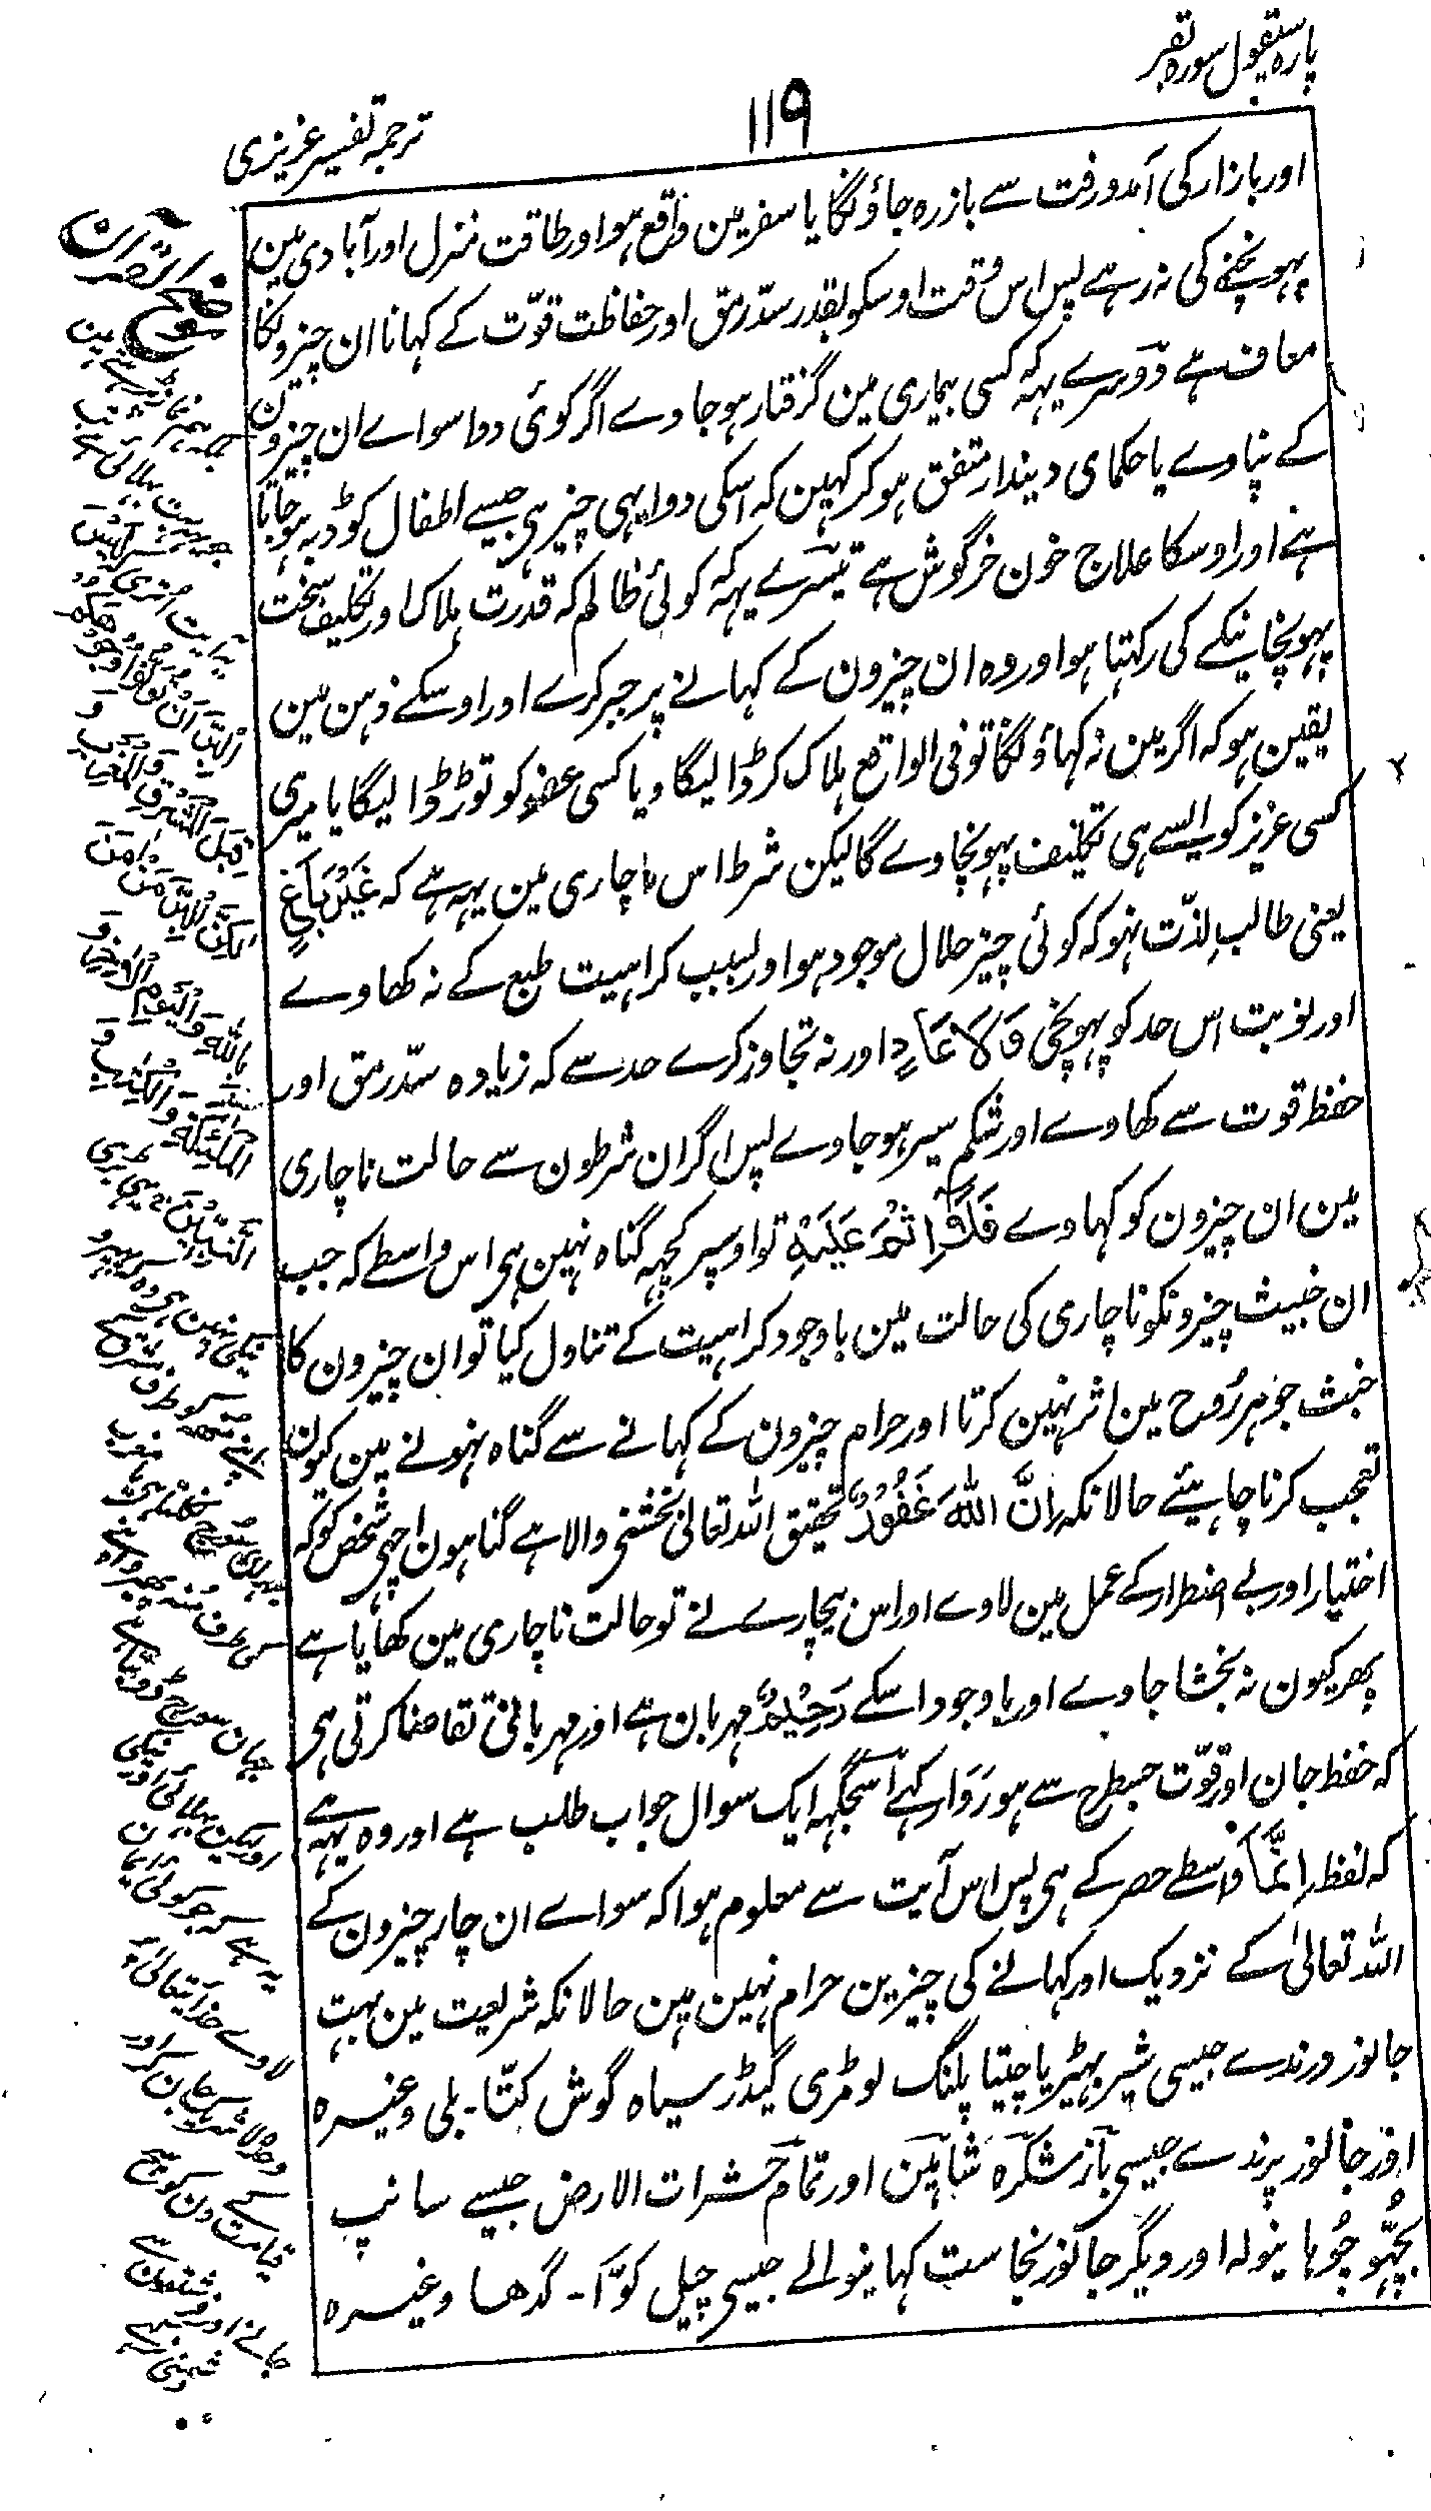 پارہ سیقول سورہ بقر
۱۱۹
ترجمہ تفسیر عزیزی
اور بازار کی آمدورفت سے باز رہ جاؤنگا یا سفر مین واقع ہو اور طاقت منزل اور آبادی مین
پہونچنے کی نہ رہے پس اس وقت اوسکو بقدر سدّ رمق اور حفاظت قوّت کے کہانا ان چیزونکا
معاف ہے دوسرے یہہ کہ کسی بیماری مین گرفتار ہو جاوے اگر کوئی دوا سواے ان چیزون
کے نپاوے یا حکمای دیندار متفق ہو کر کہین کہ اسکی دوا یہی چیز ہی جیسے اطفال کو ڈبہ ہو جاتا
ہے اور اوسکا علاج خون خرگوش ہے تیسرے یہہ کہ کوئی ظالم کہ قدرت ہلاک اور تکلیف سخت
پہونچانیکے کی رکہتا ہو اور وہ ان چیزون کے کہانے پر جبر کرے اور اوسکے ذہن مین
یقین ہو کہ اگر مین نہ کہاؤنگا تو فی الواقع ہلاک کر ڈالیگا و یا کسی عضو کو توڑ ڈالیگا یا میری
کسی عزیز کو ایسے ہی تکلیف پہونچاوے گا لیکن شرط اس ناچاری مین یہہ ہے کہ غَیْرَ بَاغٍ
یعنی طالبِ لذّت نہو کہ کوئی چیز حلال موجود ہو اور بسبب کراہیت طبع کے نہ کھاوے
اور نوبت اس حد کو پہونچی وَلَا عَادٍ اور نہ تجاوز کرے حد سے کہ زیادہ سدّ رمق اور
حفظ قوت سے کھاوے اور شکم سیر ہو جاوے پس اگر ان شرطون سے حالت ناچاری
مین ان چیزون کو کہاوے فَلَآ اِثْمَ عَلَیْہِ تو اوسپر کچہہ گناہ نہین ہی اس واسطے کہ جب
ان خبیث چیزونکو ناچاری کی حالت مین باوجود کراہیت کے تناول کیا تو ان چیزون کا
خبث جوہر رُوح مین اثر نہین کرتا اور حرام چیزون کے کہانے سے گناہ نہونے مین کیون
تعجب کرنا چاہیئے حالانکہ اِنَّ اللّٰہَ غَفُوْرٌ تحقیق اللہ تعالیٰ بخشنی والا ہے گناہون شخص کو کہ
اختیار اور بے اضطرار کے عمل مین لاوے اور اس بیچارے نے تو حالت ناچاری مین کھایا ہے
پھر کیون نہ بخشا جاوے اور باوجود اسکے رَحِیْمٌ مہربان ہے اور مہربانی تقاضا کرتی ہی
کہ حفظ جان اور قوّت جسطرح سے ہو رَوَا رکہے اسجگہہ ایک سوال جواب طلب ہے اور وہ یہہ ہے
کہ لفظ اِنَّمَا واسطے حصر کے ہی پس اس آیت سے معلوم ہوا کہ سواے ان چار چیزون کے
اللہ تعالیٰ کے نزدیک اور کہانے کی چیزین حرام نہین ہین حالانکہ شریعت مین بہت
جانور درندے جیسی شیر بہیڑیا چیتا پلنگ لومڑی گیدڑ سیاہ گوش کتّا۔ بلی وغیرہ
اور جانور پرندے جیسی باز شکرہ شاہین اور تمام حشرات الارض جیسے سانپ
بچّہو چُوہا نیولہ اور دیگر جانور نجاست کہانیوالے جیسی چیل کوّا۔ گدھا وغیرہ
موضح القرآن
لَیْسَ
الْبِرَّ اَنْ تُوَلُّوْا وُجُوْھَکُمْ
قِبَلَ الْمَشْرِقِ وَالْمَغْرِبِ وَ
لٰکِنَّ الْبِرَّ مَنْ اٰمَنَ
بِاللّٰہِ وَالْیَوْمِ الْاٰخِرِ وَ
الْمَلٰٓئِکَۃِ وَالْکِتٰبِ وَ
النَّبِیّٖنَ
نیکی نہین ہی وہ
جہان سورج ڈوبتا ہے
ولیکن بہلائی اور نیکی
یہ ہے کہ جو کوئی ایمان
لاوے خدا یتعالیٰ پر
قیامت کے دن کو سچ
جانے اور فرشتون سے
دشمنی نہ